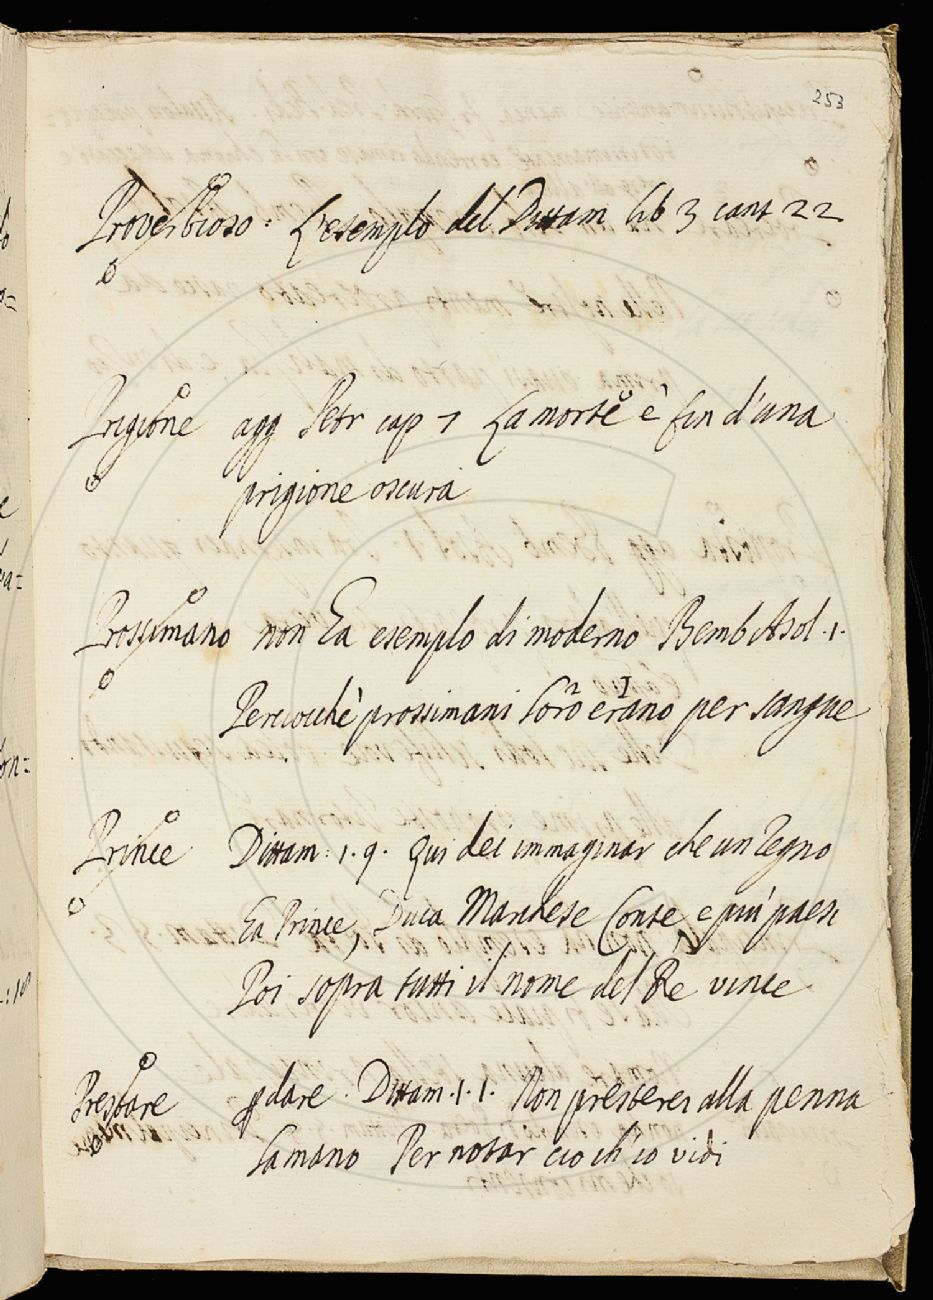 253
Proverbioso: L'esempio del Dittam lib 3 cant 22
Prigione agg Petr cap 7 La morte è fin d'una
prigione oscura
Prossimano non Ea esemplo di moderno Bemb Asol. 1.
Perciocchè prossimani loro erano per sangue
2 1
Prince Dittam: 1. 9. Qui dei immaginar che un Regno
Ea Prince, Duca Marchese Conte, e più paesi
Poi sopra tutti il nome del Re vince
Prestare p dare. Dittam. 1. 1. Non presterei alla penna
la mano Per notar ciò ch'io vidi